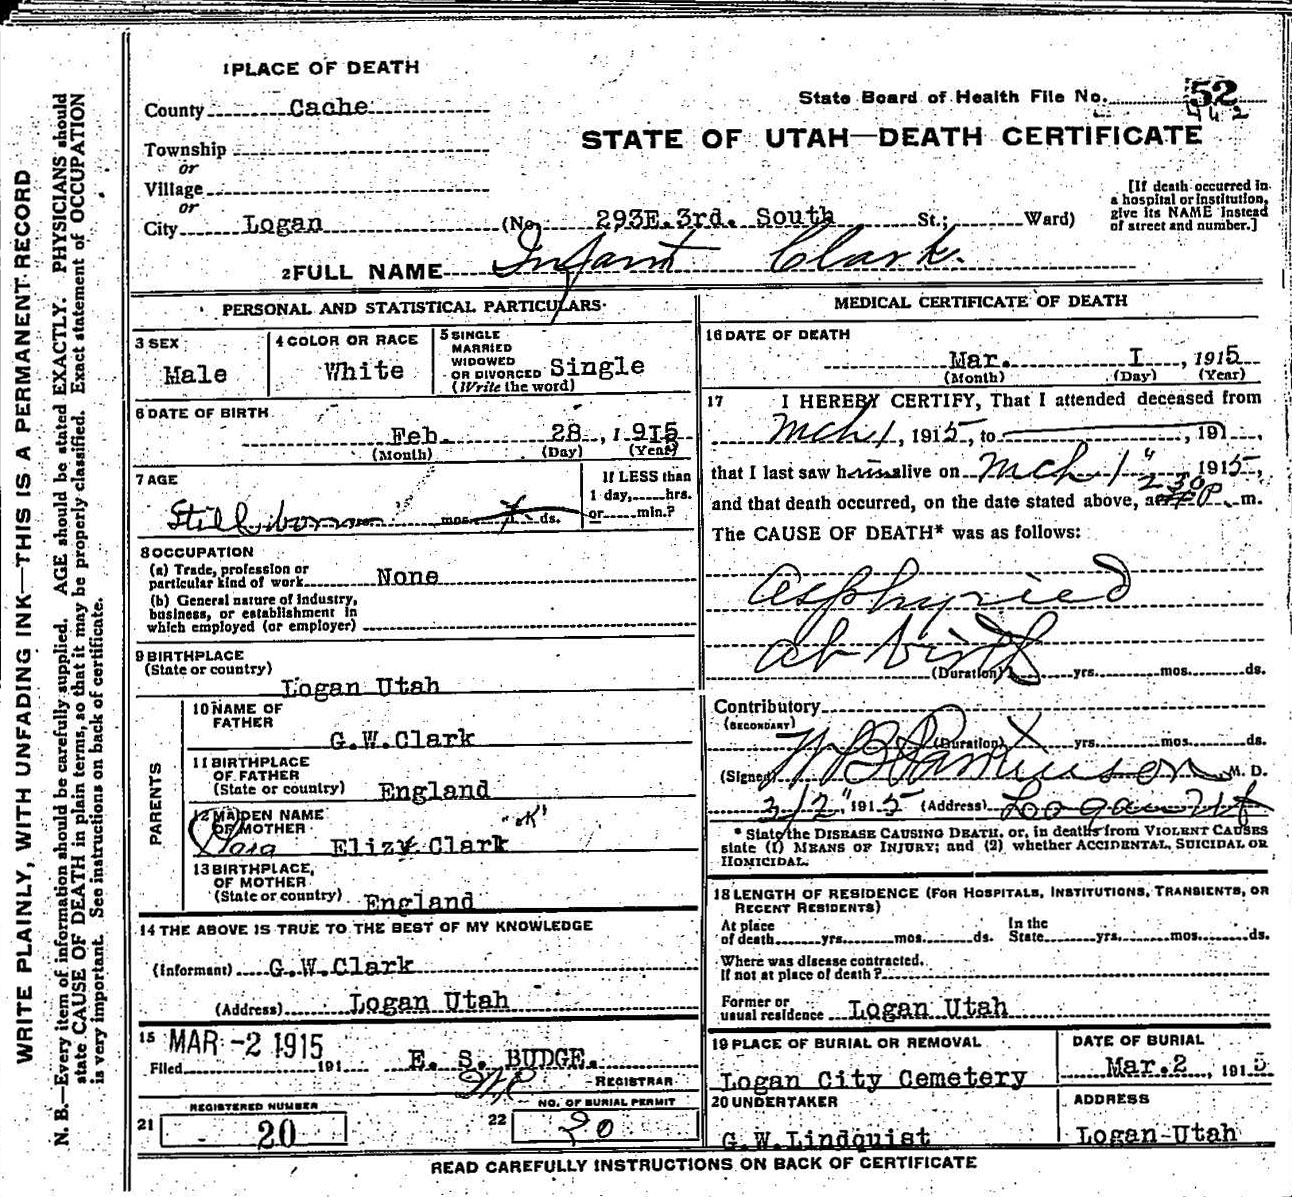 1 PLACE OF DEATH
County Cache
State Board of Health File No. 52
442
STATE OF UTAH—DEATH CERTIFICATE
Township
or
Village
or
City Logan (No. 293E.3rd. South St.; Ward)
[If death occurred in a hospital or institution, give its NAME instead of street and number.]
2 FULL NAME Infant Clark.
PERSONAL AND STATISTICAL PARTICULARS
3 SEX
Male
4 COLOR OR RACE
White
5 SINGLE
MARRIED
WIDOWED
OR DIVORCED Single
(Write the word)
6 DATE OF BIRTH
Feb. 28, 1915
(Month) (Day) (Year)
7 AGE
Stillborn mos. ds.
If LESS than
1 day, hrs.
or min.?
8 OCCUPATION
(a) Trade, profession or
particular kind of work None
(b) General nature of industry,
business, or establishment in
which employed (or employer)
9 BIRTHPLACE
(State or country)
Logan Utah
PARENTS
10 NAME OF
FATHER
G.W.Clark
11 BIRTHPLACE
OF FATHER
(State or country) England
12 MAIDEN NAME
OF MOTHER
Eliz Clark
13 BIRTHPLACE
OF MOTHER
(State or country) England
14 THE ABOVE IS TRUE TO THE BEST OF MY KNOWLEDGE
(Informant) G.W.Clark
(Address) Logan Utah
15 MAR -2 1915
Filed 191
E. S. BUDGE.
REGISTRAR
21 REGISTERED NUMBER
20
22 NO. OF BURIAL PERMIT
20
MEDICAL CERTIFICATE OF DEATH
16 DATE OF DEATH
Mar. I, 1915
(Month) (Day) (Year)
17 I HEREBY CERTIFY, That I attended deceased from
Mch 1, 1915, to , 191 ,
that I last saw him alive on Mch 1", 1915,
and that death occurred, on the date stated above, at 2 30 P m.
The CAUSE OF DEATH* was as follows:
Asphyxied
at birth
(Duration) yrs. mos. ds.
Contributory
(SECONDARY)
(Duration) yrs. mos. ds.
(Signed) M. D.
3/2" 1915 (Address) Logan Ut
* State the DISEASE CAUSING DEATH, or, in deaths from VIOLENT CAUSES
state (1) MEANS OF INJURY; and (2) whether ACCIDENTAL, SUICIDAL OR
HOMICIDAL.
18 LENGTH OF RESIDENCE (FOR HOSPITALS, INSTITUTIONS, TRANSIENTS, OR
RECENT RESIDENTS)
At place
of death yrs. mos. ds.
In the
State yrs. mos. ds.
Where was disease contracted,
If not at place of death?
Former or
usual residence Logan Utah
19 PLACE OF BURIAL OR REMOVAL
Logan City Cemetery
DATE OF BURIAL
Mar.2, 1915
20 UNDERTAKER
G.W.Lindquist
ADDRESS
Logan-Utah
READ CAREFULLY INSTRUCTIONS ON BACK OF CERTIFICATE
WRITE PLAINLY, WITH UNFADING INK—THIS IS A PERMANENT RECORD
N. B.—Every item of information should be carefully supplied. AGE should be stated EXACTLY. PHYSICIANS should
state CAUSE OF DEATH in plain terms, so that it may be properly classified. Exact statement of OCCUPATION
is very important. See instructions on back of certificate.